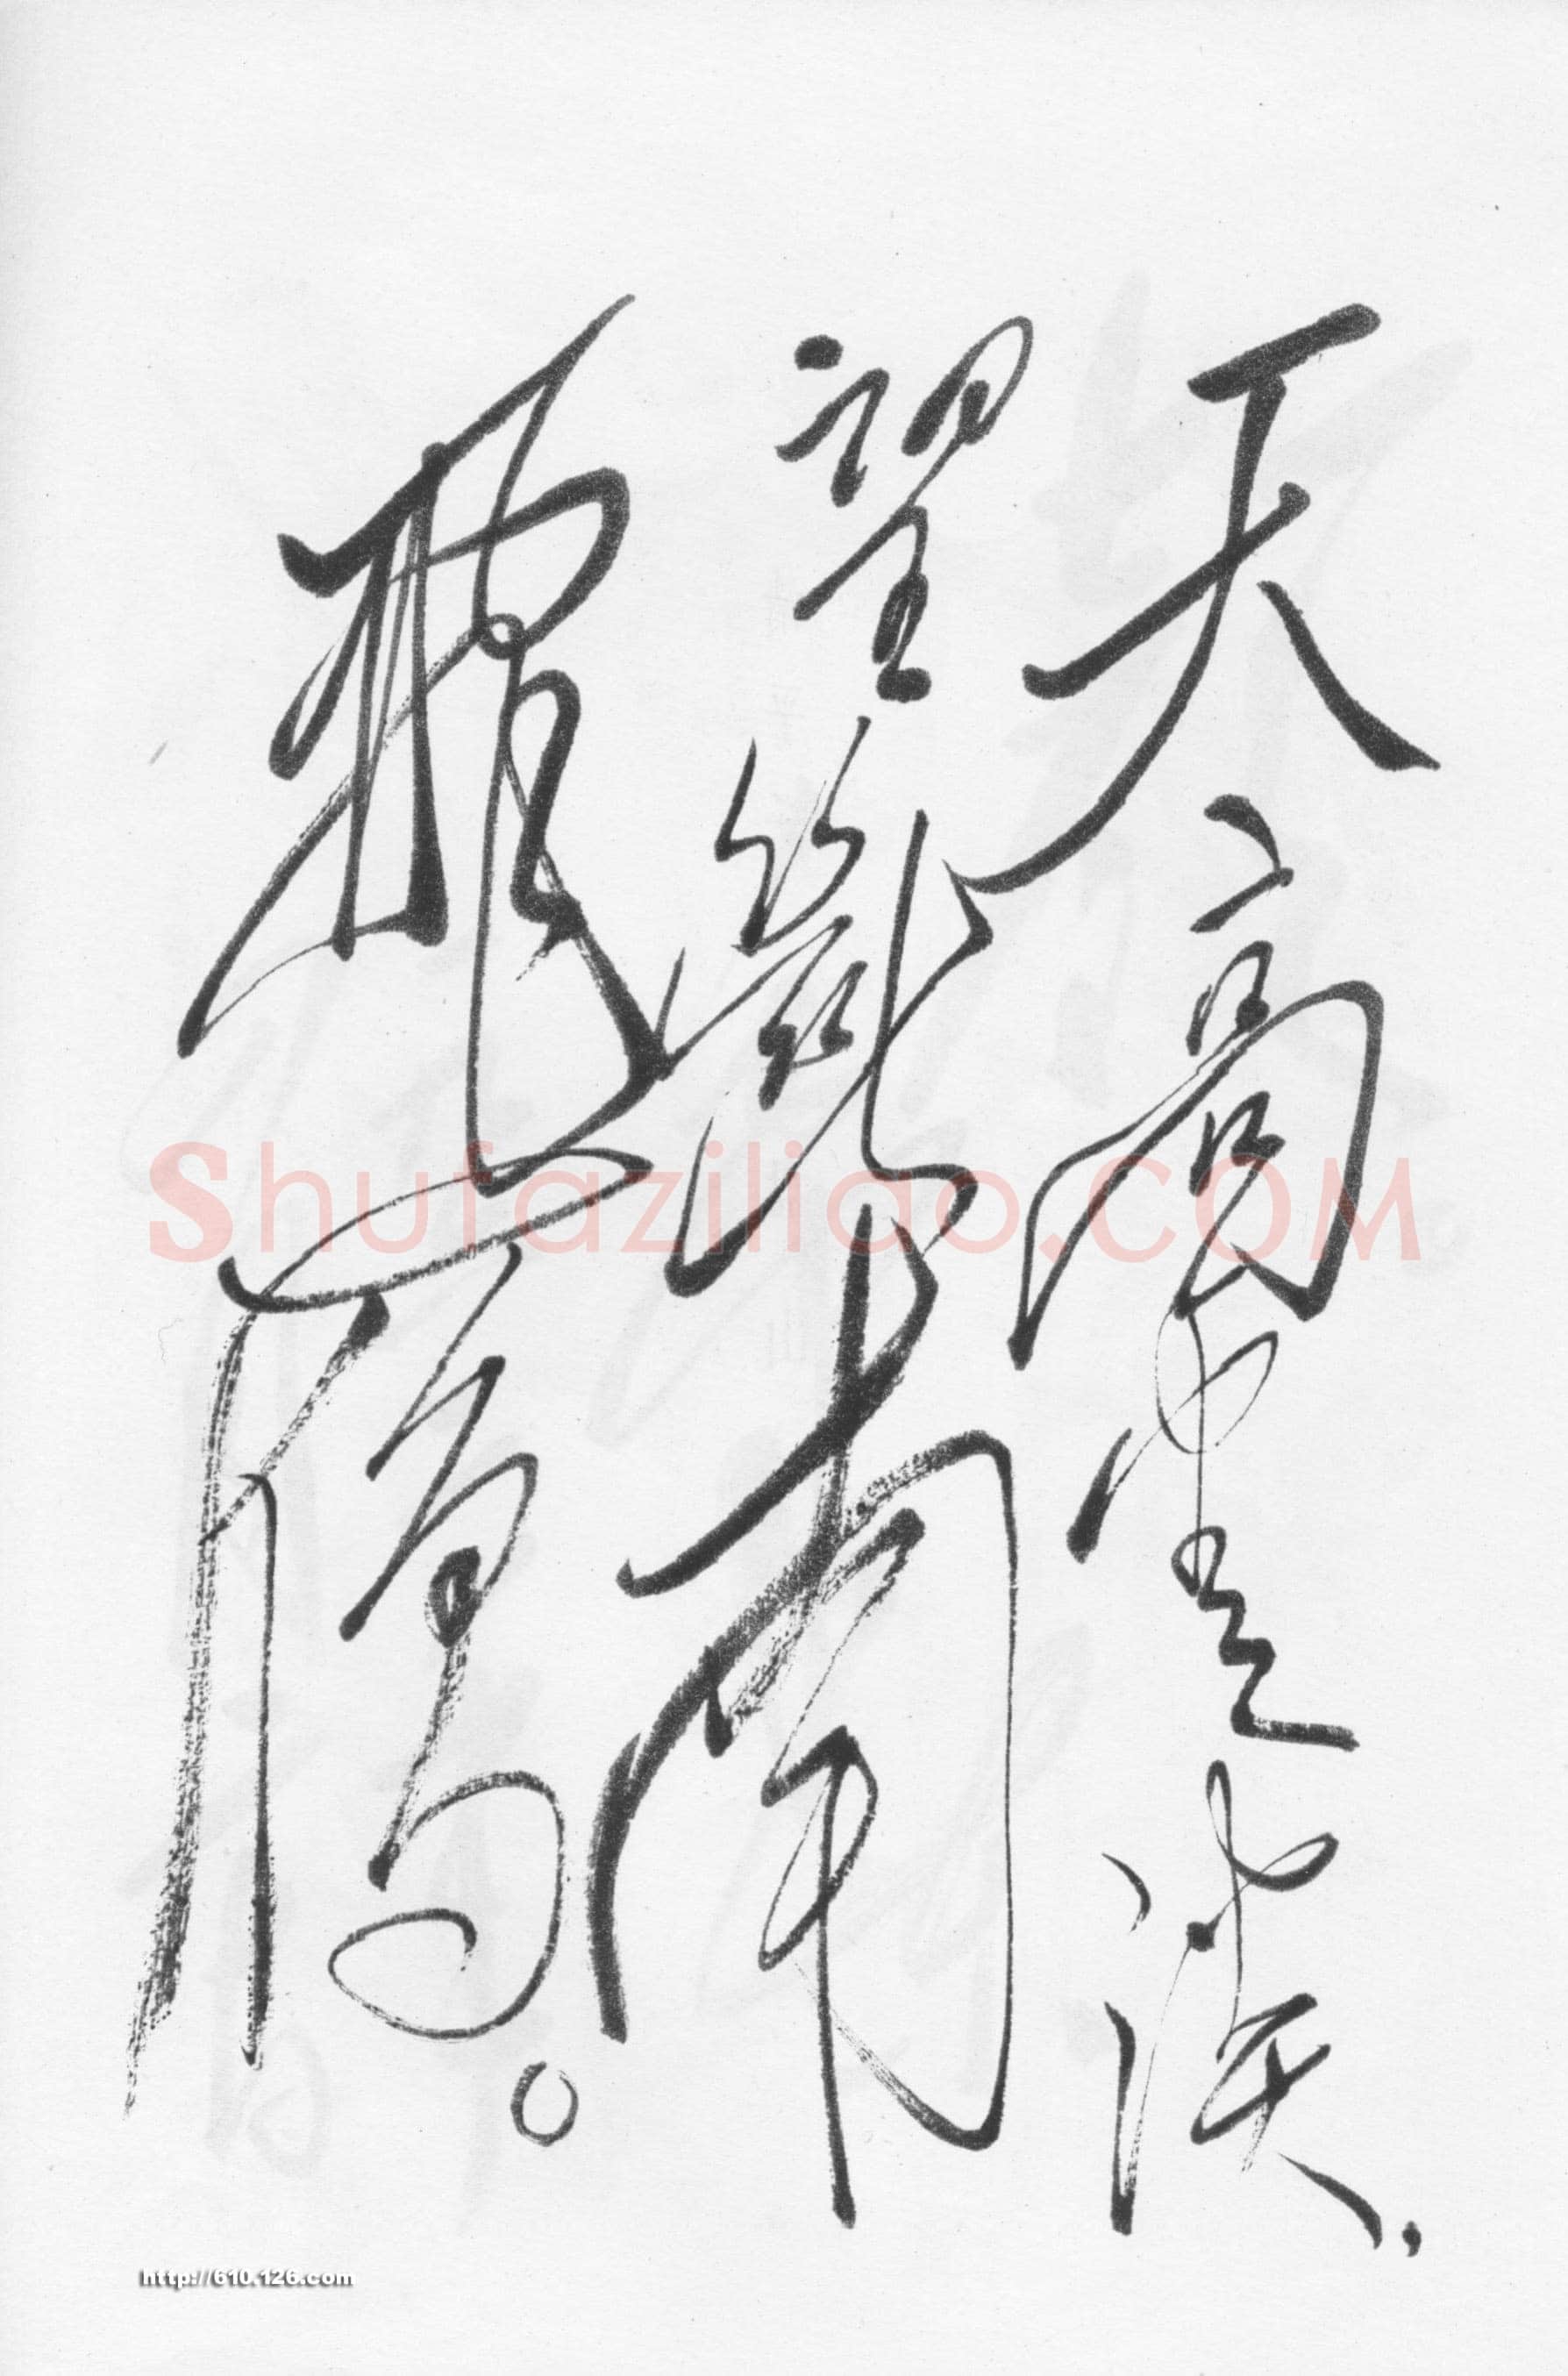 天高雲淡，
望斷南
飛雁。
Shufaziliao.COM
http://610.126.com